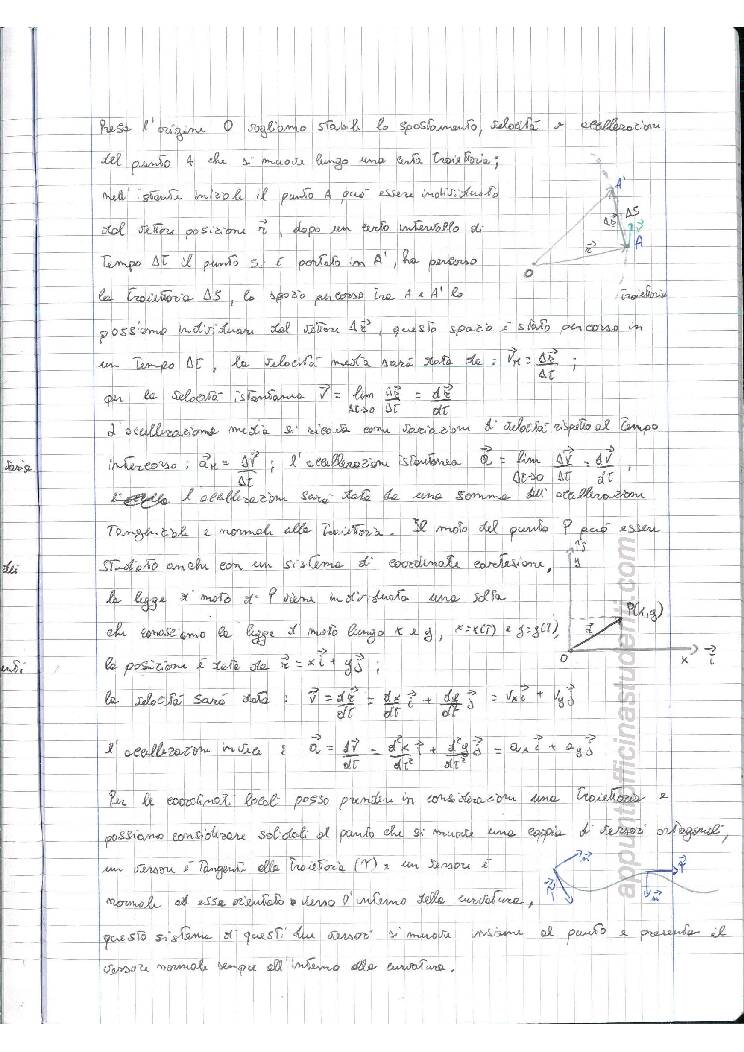 Preso l'origine O vogliamo stabilire lo spostamento, velocità e accellerazioni
del punto A che si muove lungo una certa traiettoria;
nell'istante iniziale il punto A può essere individuato
dal vettore posizione r⃗, dopo un certo intervallo di
tempo Δt il punto si è portato in A', ha percorso
la traiettoria ΔS, lo spazio percorso tra A e A' lo
possiamo individuare dal vettore Δr⃗, questo spazio è stato percorso in
un tempo Δt, la velocità media sarà data da: v⃗M = Δr⃗/Δt ;
per la velocità istantanea v⃗ = lim Δt→0 Δr⃗/Δt = dr⃗/dt
L'accellerazione media si ricava come variazioni di velocità rispetto al tempo
intercorso: a⃗M = Δv⃗/Δt ; l'accellerazione istantanea a⃗ = lim Δt→0 Δv⃗/Δt = dv⃗/dt ,
l'accellerazioni sarà data da una somma dell'accellerazioni
tangenziale e normale alla traiettoria. Il moto del punto P può essere
studiato anche con un sistema di coordinate cartesiane,
la legge di moto di P viene individuata una volta
che conosciamo la legge di moto lungo x e y, x=x(t) e y=y(t),
la posizione è data da r⃗ = xi⃗ + yj⃗ ;
la velocità sarà data : v⃗ = dr⃗/dt = dx/dt i⃗ + dy/dt j⃗ = vx i⃗ + vy j⃗
l'accellerazioni invece : a⃗ = dv⃗/dt = d²x/dt² i⃗ + d²y/dt² j⃗ = ax i⃗ + ay j⃗
Per le coordinate locali posso prendere in considerazioni una traiettoria e
possiamo considerare solidali al punto che si muove una coppia di versori ortogonali,
un versore è tangente alla traiettoria (τ) e un versore è
normale ad essa orientato verso l'interno della curvatura,
questo sistema di questi due versori si muove insieme al punto e presenta il
versore normale sempre all'interno alla curvatura.
A'
ΔS
Δr⃗
v⃗
r⃗
A
O
traiettoria
j⃗
y
P(x,y)
r⃗
O
x
i⃗
n⃗
τ⃗
τ⃗
n⃗
dei
appuntiofficinastudenti.com